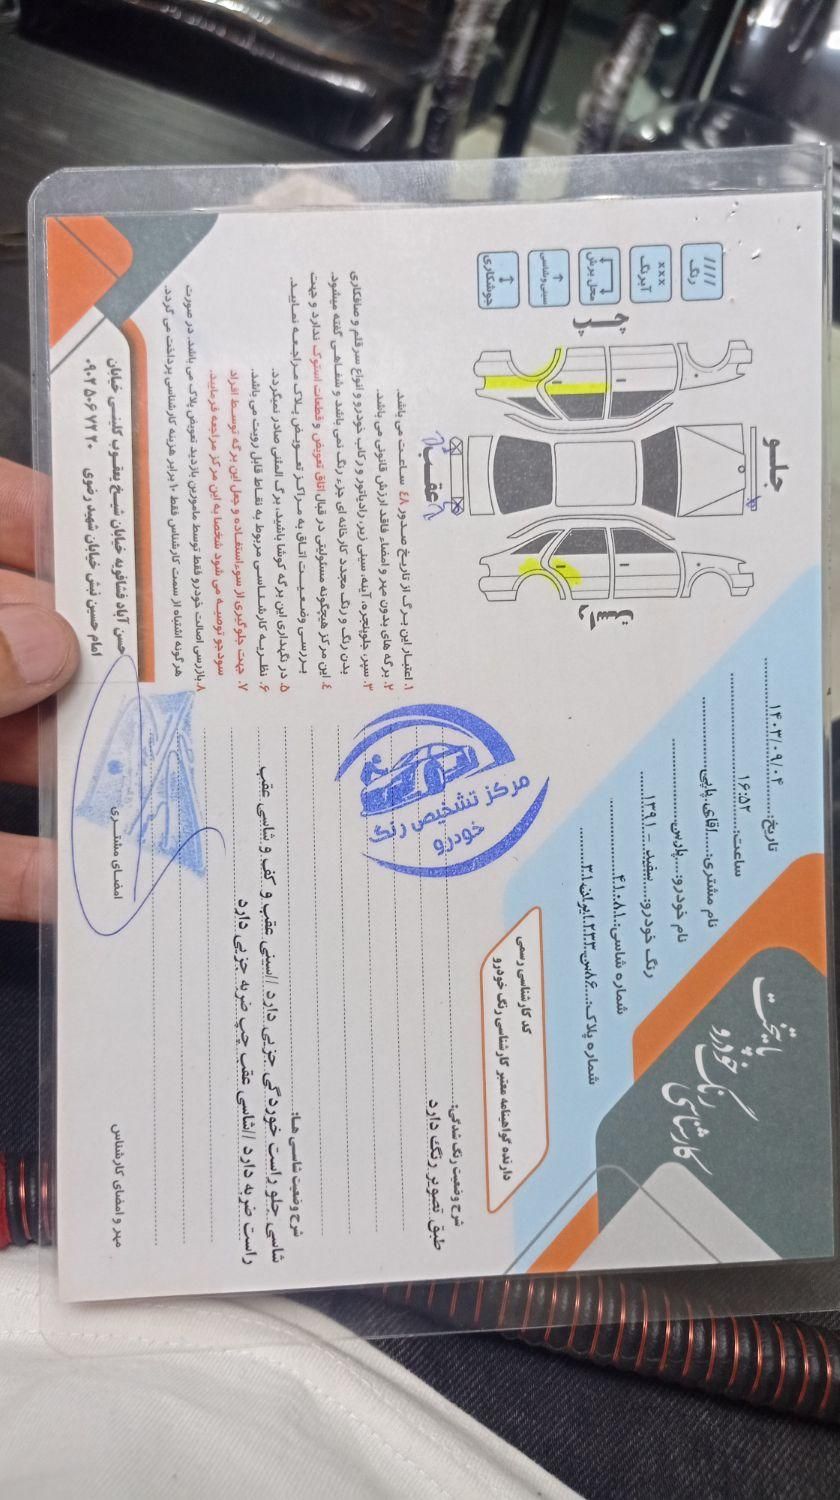 پایتخت
کارشناسی رنگ خودرو
تاریخ: ۱۴۰۳/۰۹/۰۴
ساعت: ۱۶:۵۲
نام مشتری: آقای پاپی
نام خودرو: پارس
رنگ خودرو: سفید - ۱۳۹۱
شماره شاسی: ۴۱۰۸۱
شماره پلاک: ۸۶س۲۳۳ ایران ۳۱
کد کارشناسی رسمی
دارنده گواهینامه معتبر کارشناسی رنگ خودرو
////
رنگ
xxx
آبرنگ
محل برش
سینی و شاسی
جوشکاری
جلو
عقب
چپ
راست
۱. اعتبار این برگ از تاریخ صدور ۴۸ ساعت می باشد.
۲. برگه های بدون مهر و امضاء فاقد ارزش قانونی می باشد.
۳. سپر، جلوپنجره، آینه، سینی زیر رادیاتور و رکاب خودرو و انواع سرقلم و صافکاری
بدن رنگ و رنگ مجدد کارخانه ای جزء رنگ نمی باشد و شفاهی گفته میشود.
۴. این مرکز هیچگونه مسئولیتی در قبال اتاق تعویض و قطعات استوک ندارد و جهت
بررسی وضعیت اتاق به مراکز تعویض پلاک مراجعه نمایید.
۵. در نگهداری این برگه کوشا باشید، برگ المثنی صادر نمیگردد.
۶. نظریه کارشناسی مربوط به نقاط قابل رویت می باشد.
۷. جهت جلوگیری از سوء استفاده و جعل این برگه توسط افراد
سودجو توصیه می شود شخصا به این مرکز مراجعه فرمایید.
۸. بازرسی اصالت خودرو فقط توسط مامورین بازدید تعویض پلاک می باشد. در صورت
هرگونه اشتباه از سمت کارشناس فقط ۱۰ برابر هزینه کارشناسی پرداخت می گردد.
شرح وضعیت رنگ شدگی:
طبق تصویر رنگ دارد
مرکز تشخیص رنگ
خودرو
شرح وضعیت شاسی ها:
شاسی جلو راست خوردگی جزیی دارد //سینی عقب و کف و شاسی عقب
راست ضربه دارد //شاسی عقب چپ ضربه جزیی دارد
مهر و امضای کارشناس
امضای مشتری
حسن آباد فشافویه خیابان شیخ یعقوب کلینی خیابان
امام حسین نبش خیابان شهید رضوی